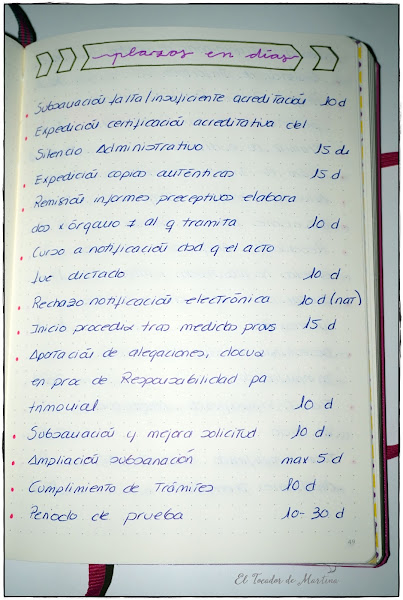 plazos en días
Subsanación falta/insuficiente acreditación 10 d
Expedición certificación acreditativa del
Silencio Administrativo 15 d
Expedición copias auténticas 15 d.
Remisión informes preceptivos elabora
dos x órgano ≠ al q tramita 10 d
Curso a notificación dsd q el acto
fue dictado 10 d
Rechazo notificación electrónica 10 d (nat)
Inicio procedim tras medidas provs 15 d
Aportación de alegaciones, docum
en proc de Responsabilidad pa
trimonial 10 d
Subsanación y mejora solicitud 10 d.
Ampliación subsanación max 5 d
Cumplimiento de Trámites 10 d
Periodo de prueba 10-30 d
El Tocador de Martina